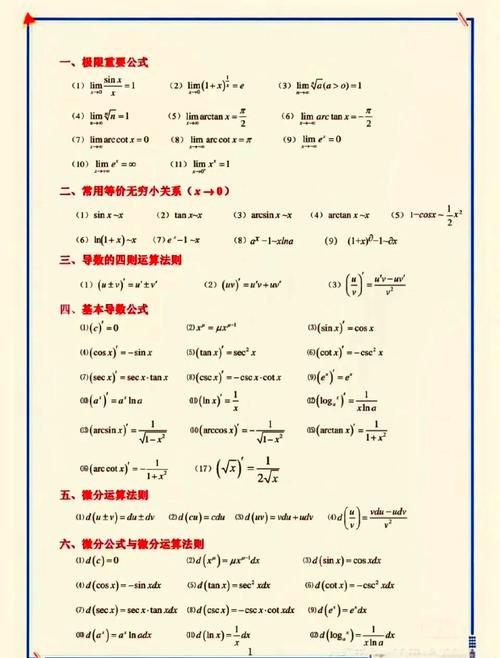 一、极限重要公式
(1) lim_{x→0} sin x / x = 1 (2) lim_{x→0} (1+x)^{1/x} = e (3) lim_{n→∞} ⁿ√a (a>o) = 1
(4) lim_{n→∞} ⁿ√n = 1 (5) lim_{x→∞} arctan x = π/2 (6) lim_{x→-∞} arc tan x = -π/2
(7) lim_{x→∞} arc cot x = 0 (8) lim_{x→-∞} arc cot x = π (9) lim_{x→-∞} e^x = 0
(10) lim_{x→+∞} e^x = ∞ (11) lim_{x→0⁺} x^x = 1
二、常用等价无穷小关系（x → 0）
(1) sin x ~x (2) tan x~x (3) arcsin x ~x (4) arctan x ~x (5) 1-cosx ~ 1/2 x²
(6) ln(1+x) ~x (7) e^x -1 ~x (8) a^x -1~xlna (9) (1+x)^∂ -1~∂x
三、导数的四则运算法则
(1) (u ± v)′ = u′ ± v′ (2) (uv)′ = u′v + uv′ (3) (u/v)′ = (u′v - uv′)/v²
四、基本导数公式
(1) (c)′ = 0 (2) x^μ = μx^{μ-1} (3) (sin x)′ = cos x
(4) (cos x)′ = -sin x (5) (tan x)′ = sec² x (6) (cot x)′ = -csc² x
(7) (sec x)′ = sec x·tan x (8) (csc x)′ = -csc x·cot x (9) (e^x)′ = e^x
(10) (a^x)′ = a^x ln a (11) (ln x)′ = 1/x (12) (log_a^x)′ = 1/(x ln a)
(13) (arcsin x)′ = 1/√(1-x²) (14) (arccos x)′ = -1/√(1-x²) (15) (arctan x)′ = 1/(1+x²)
(16) (arc cot x)′ = -1/(1+x²) (17) (√x)′ = 1/(2√x)
五、微分运算法则
(1) d(u ± v) = du ± dv (2) d(cu) = cdu (3) d(uv) = vdu + udv (4) d(u/v) = (vdu - udv)/v²
六、微分公式与微分运算法则
(1) d(c) = 0 (2) d(x^μ) = μx^{μ-1}dx (3) d(sin x) = cos xdx
(4) d(cos x) = -sin xdx (5) d(tan x) = sec² xdx (6) d(cot x) = -csc² xdx
(7) d(sec x) = sec x·tan xdx (8) d(csc x) = -csc x·cot xdx (9) d(e^x) = e^x dx
(10) d(a^x) = a^x ln adx (11) d(ln x) = 1/x dx (12) d(log_a^x) = 1/(x ln a) dx
1